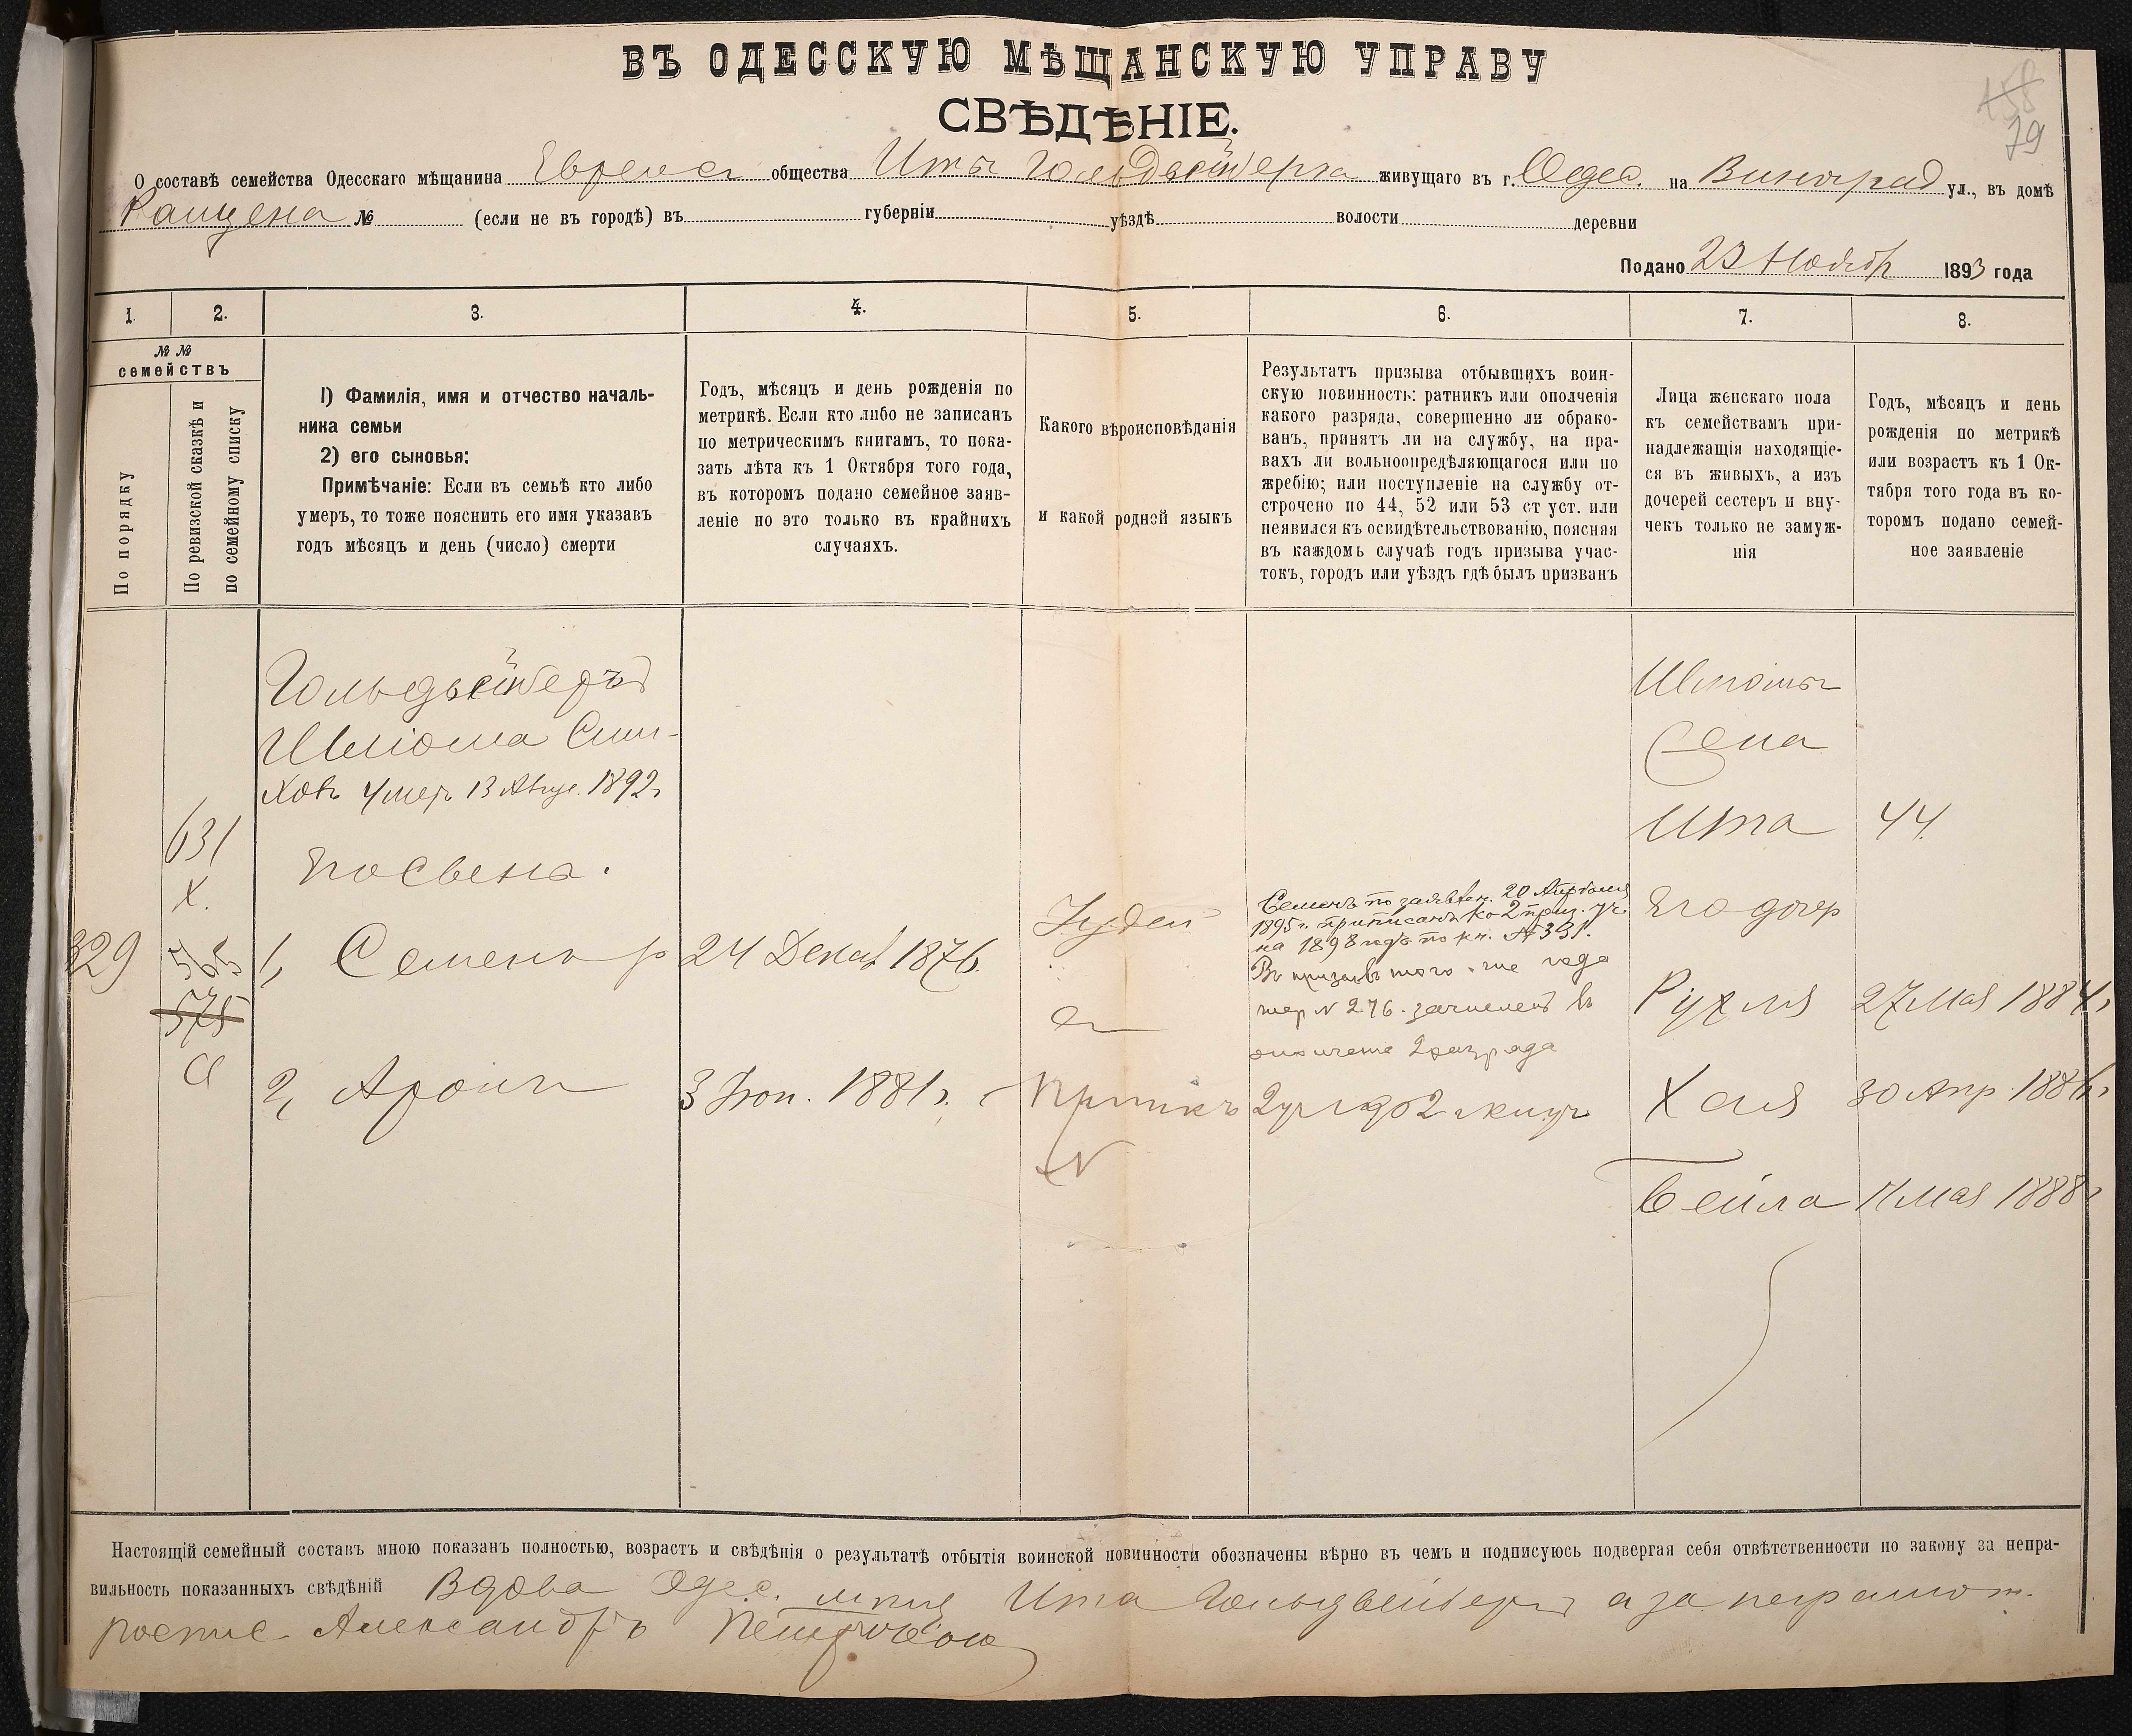 158
79
ВЪ ОДЕССКУЮ МѢЩАНСКУЮ УПРАВУ
СВѢДѢНІЕ.
О составѣ семейства Одесскаго мѣщанина Евреевъ общества Иты живущаго въ г. Одес. на Виноград ул., въ домѣ
№ (если не въ городѣ) въ губерніи уѣздѣ волости деревни
Подано 23 Ноябр 1893 года
1. 2. 3. 4. 5. 6. 7. 8.
№ №
семействъ
По порядку
По ревизской сказкѣ и
по семейному списку
1) Фамилія, имя и отчество началь-
ника семьи
2) его сыновья:
Примѣчаніе: Если въ семьѣ кто либо
умеръ, то тоже пояснить его имя указавъ
годъ мѣсяцъ и день (число) смерти
Годъ, мѣсяцъ и день рожденія по
метрикѣ. Если кто либо не записанъ
по метрическимъ книгамъ, то пока-
зать лѣта къ 1 Октября того года,
въ которомъ подано семейное заяв-
леніе но это только въ крайнихъ
случаяхъ.
Какого вѣроисповѣданія
и какой родной языкъ
Результатъ призыва отбывшихъ воин-
скую повинность: ратникъ или ополченія
какого разряда, совершенно ли обрако-
ванъ, принятъ ли на службу, на пра-
вахъ ли вольноопредѣляющагося или по
жребію; или поступленіе на службу от-
строчено по 44, 52 или 53 ст уст. или
неявился къ освидѣтельствованію, поясняя
въ каждомъ случаѣ годъ призыва учас-
токъ, городъ или уѣздъ гдѣ былъ призванъ
Лица женскаго пола
къ семействамъ при-
надлежащія находящіе-
ся въ живыхъ, а изъ
дочерей сестеръ и вну-
чекъ только не замуж-
нія
Годъ, мѣсяцъ и день
рожденія по метрикѣ
или возрастъ къ 1 Ок-
тября того года въ ко-
торомъ подано семей-
ное заявленіе
Шліома Сим-
ховъ умеръ 13 Авгус. 1892 г.
Его сыновья.
329
631
X.
565
575
а
1, Семенъ р 24 Декаб 1876.
2, Аронъ 3 Іюн. 1881 г.
Іудей
Семенъ по заявлен. 20 Апрѣля
1895 г. приписанъ ко 2 приз. уч.
на 1898 годъ по кн. № 331.
Въ призывъ того-же года
жер № 276. зачисленъ въ
2 разряда
Шліомы
жена
Ита 44.
Его дочер
Рухля 27 Мая 1884 г
Хая 30 Апр. 1886 г
Бейла 11 Мая 1888 г
Настоящій семейный составъ мною показанъ полностью, возрастъ и свѣдѣнія о результатѣ отбытія воинской повинности обозначены вѣрно въ чемъ и подписуюсь подвергая себя отвѣтственности по закону за непра-
вильность показанныхъ свѣдѣній Вдова Одес. мѣщ Ита Гольдвейберъ а за неграмот.
роспис. Александръ